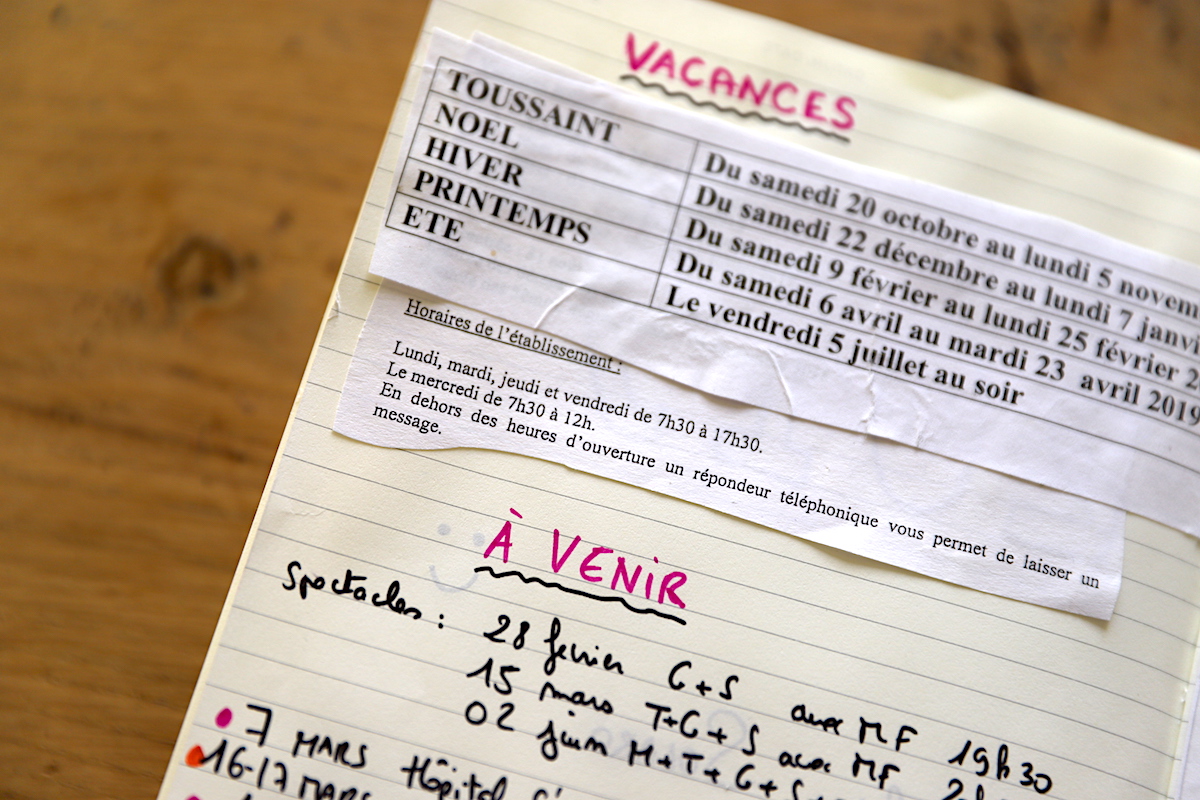 VACANCES
TOUSSAINT Du samedi 20 octobre au lundi 5
NOEL Du samedi 22 décembre au lundi 7
HIVER Du samedi 9 février au lundi 25 février
PRINTEMPS Du samedi 6 avril au mardi 23 avril 2019
ETE Le vendredi 5 juillet au soir
Horaires de l'établissement :
Lundi, mardi, jeudi et vendredi de 7h30 à 17h30.
Le mercredi de 7h30 à 12h.
En dehors des heures d'ouverture un répondeur téléphonique vous permet de laisser un
message.
À VENIR
Spectacles : 28 fevrier C+S avec MF 19h30
15 mars T+C+S avec MF
02 juin M+T+C+S
7 MARS Hôpital
16-17 MARS